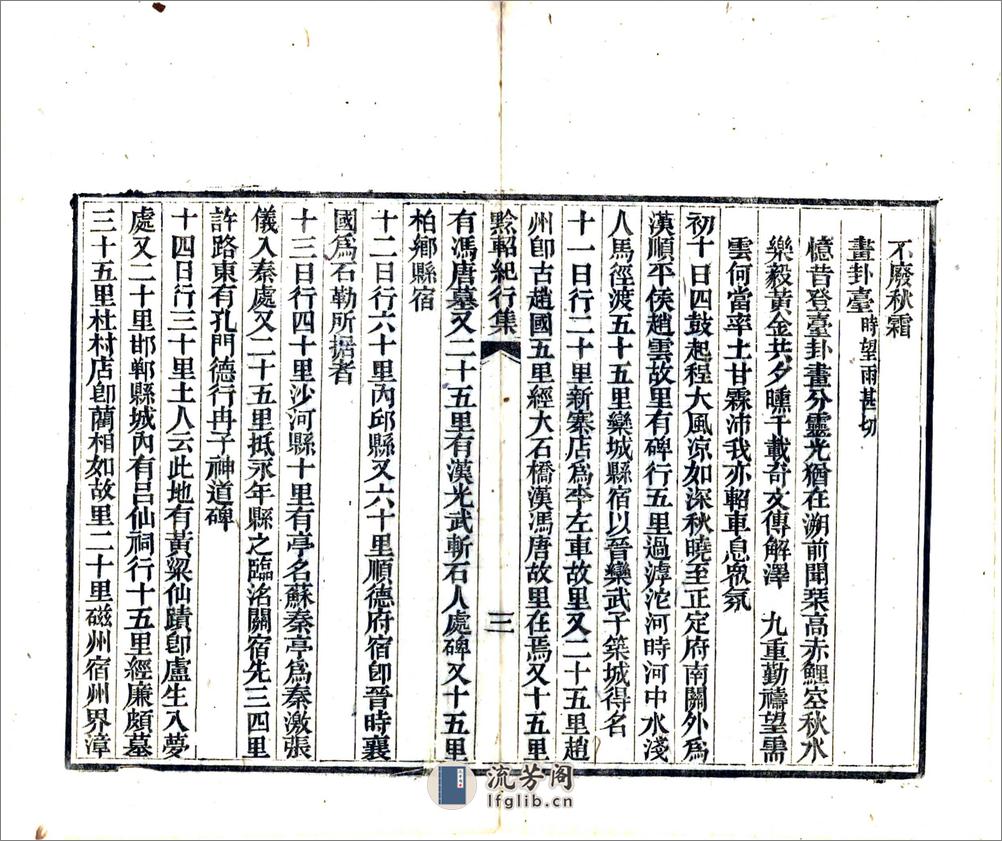 不廢秋霜
畫卦臺時望雨甚切
憶昔登臺卦畫分靈光猶在溯前聞琹高赤鯉空秋水
樂毅黃金共夕曛千載奇文傳解澤　九重勤禱望需
雲何當率土甘霖沛我亦軺車息眾氛
初十日四鼓起程大風凉如深秋曉至正定府南關外爲
漢順平侯趙雲故里有碑行五里過滹沱河時河中水淺
人馬徑渡五十五里欒城縣宿以晉欒武子築城得名
十一日行二十里新寨店爲李左車故里又二十五里趙
州卽古趙國五里經大石橋漢馮唐故里在焉又十五里
黔軺紀行集
三
有馮唐墓又二十五里有漢光武斬石人處碑又十五里
柏鄉縣宿
十二日行六十里內邱縣又六十里順德府宿卽晉時襄
國爲石勒所据者
十三日行四十里沙河縣十里有亭名蘇秦亭爲秦激張
儀入秦處又二十五里抵永年縣之臨洺關宿先三四里
許路東有孔門德行冉子神道碑
十四日行三十里土人云此地有黃粱仙蹟卽盧生入夢
處又二十里邯鄲縣城內有呂仙祠行十五里經廉頗墓
三十五里杜村店卽藺相如故里二十里磁州宿州界漳
流芳阁
lfglib.cn